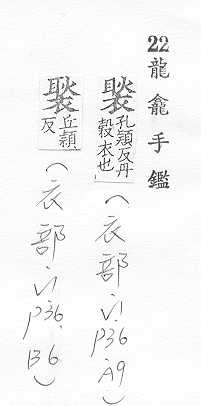 22龍龕手鑑
褧孔頴反丹縠衣也（衣部.VI.p36.A9）
褧丘頴反（衣部.VI.p36.B6）